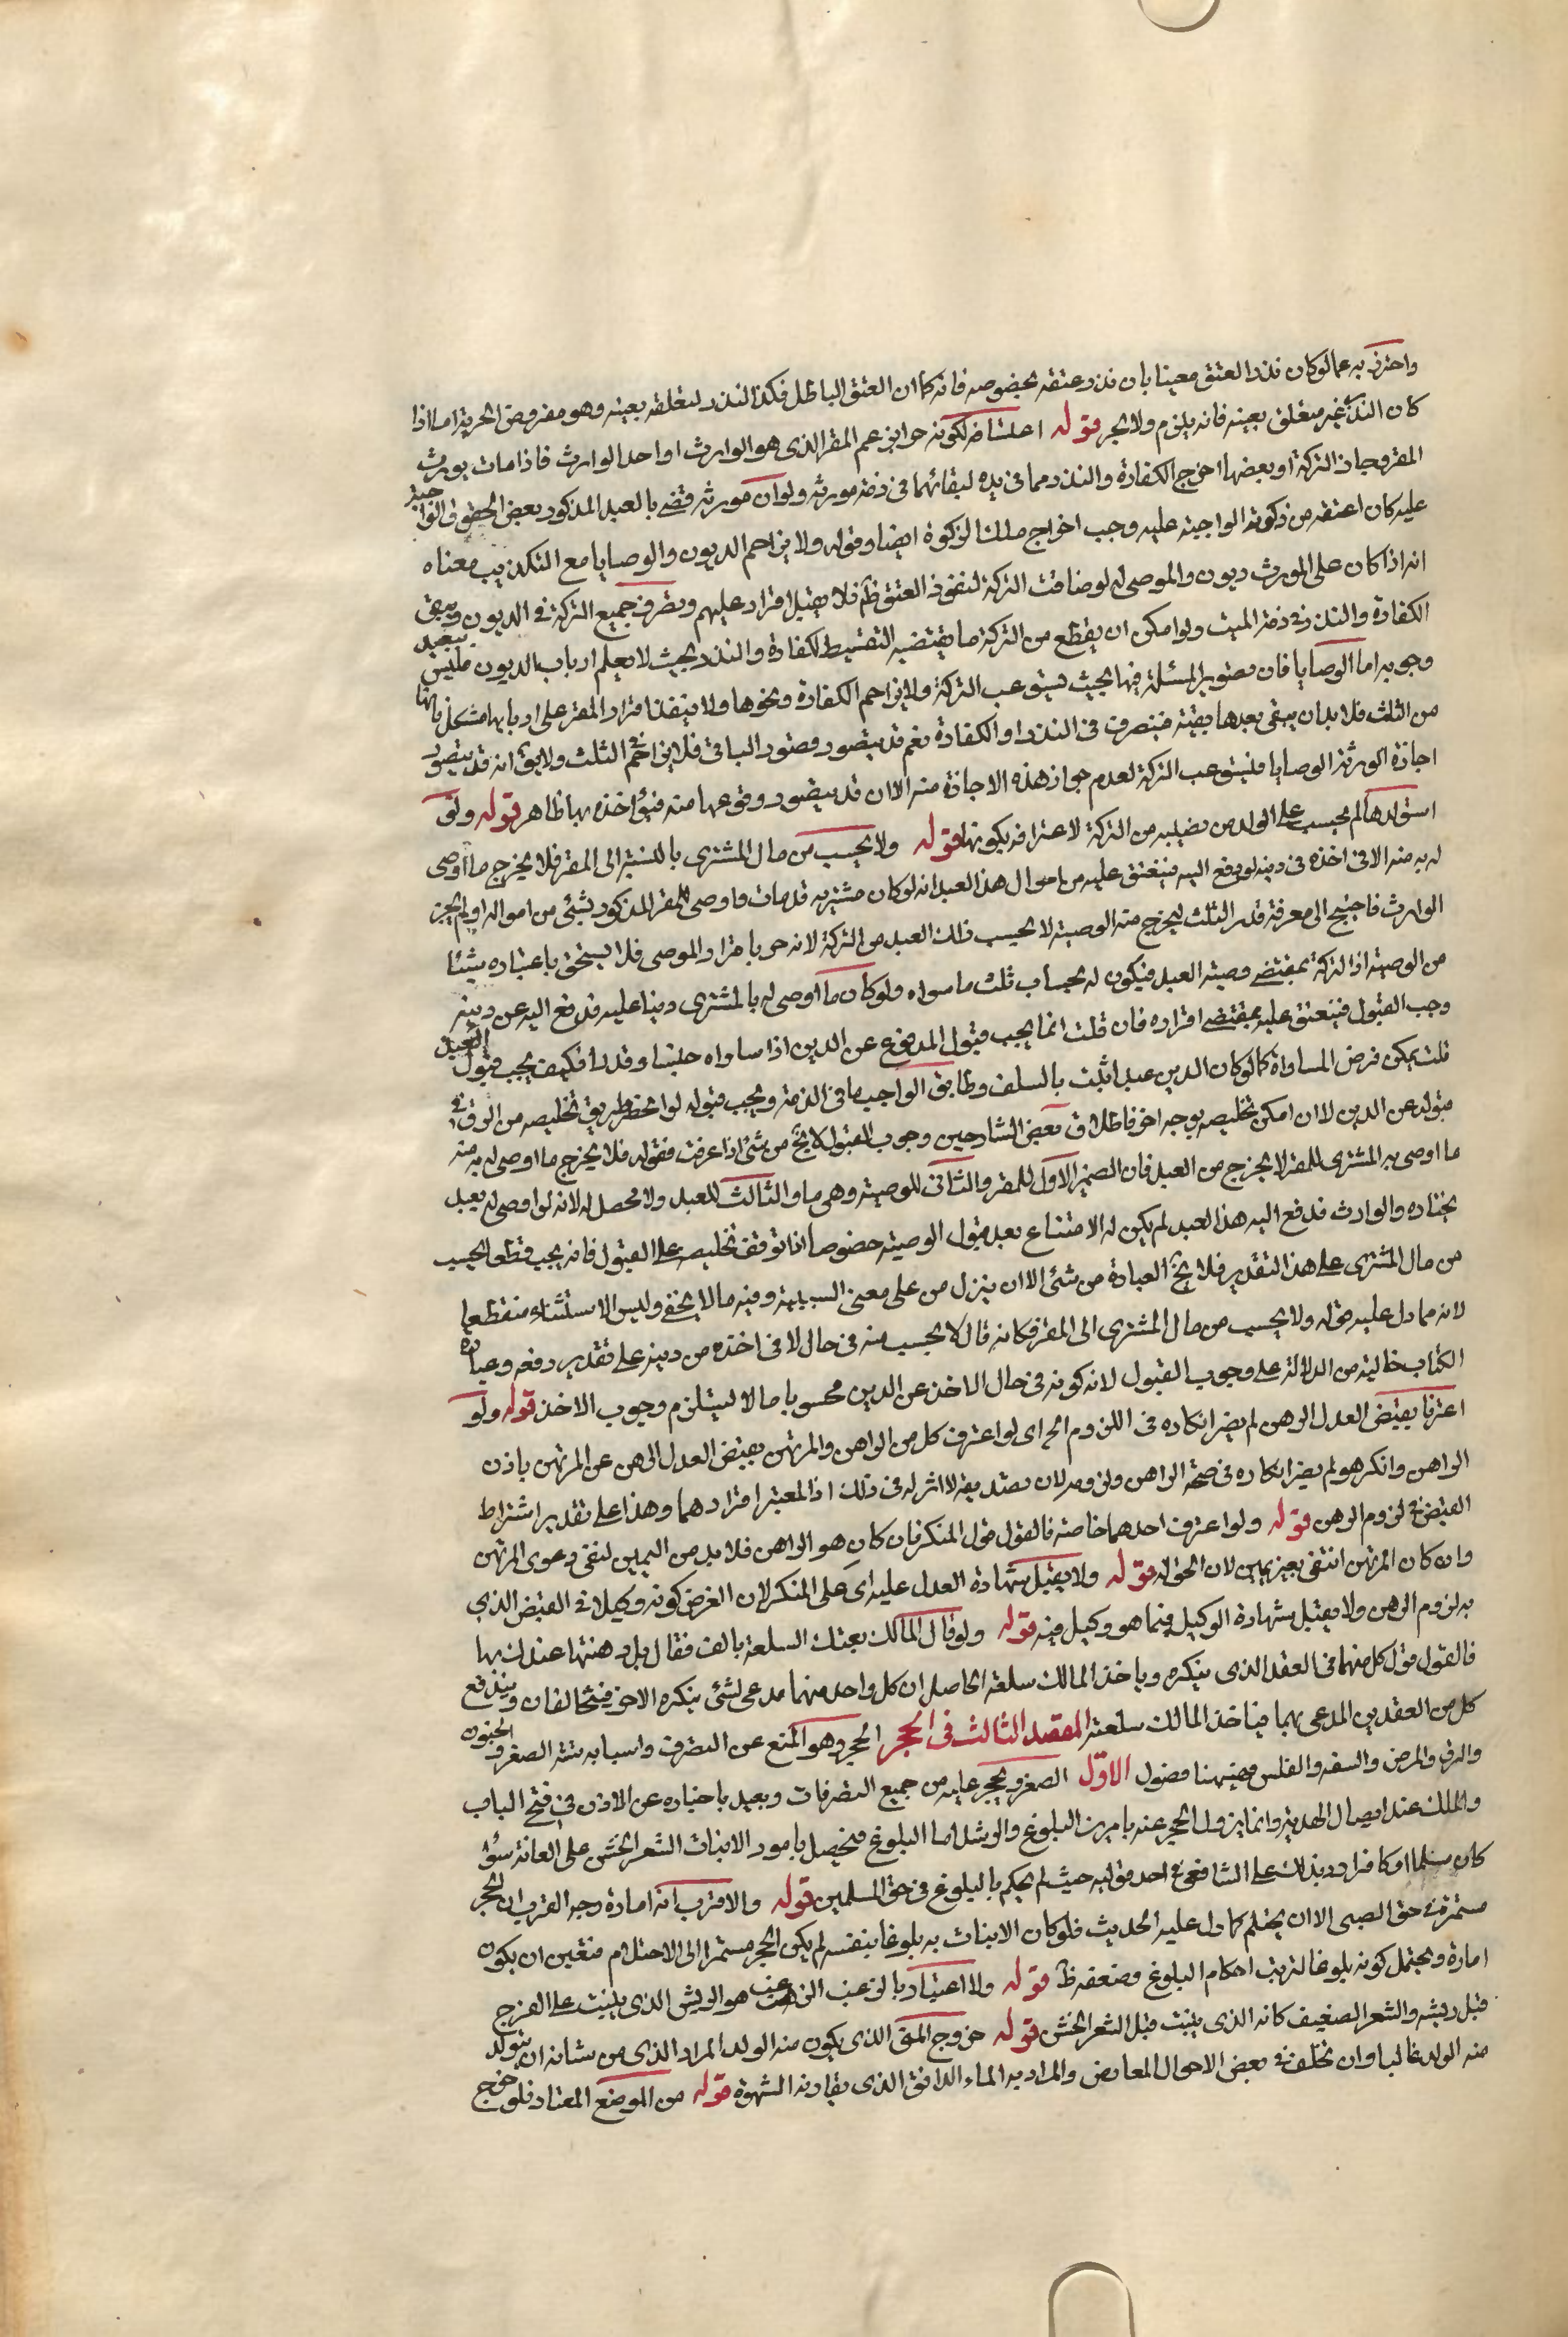 واحترز به عما لو كان نذر العتق معينا بان نذر عتقه بخصوصه فانه كما ان العتق الباطل فكذا النذر لتعلقه بعينه وهو مفروض الحرية اما اذا
كان النذر غير متعلق بعينه فانه يلزم ولا يجز قوله اعلنا ضه لكونه حوايز عم المقر الذى هو الوارث او احد الوارث فاذا مات يورث
المقر وجاز التركة او بعضها اخرج الكفارة والنذر مما فى يده لبقائهما فى ذمة مورثه ولو ان مورثه قضى بالعبد المذكور بعض الحقوق الواجبة
عليه كان اعتقه من زكوته الواجبة عليه وجب اخراج ملك الزكوة ايضا وقوله ولا يزاحم الديون والوصايا مع التكذيب معناه
انه اذا كان على المورث ديون والموصى له لو ضاقت التركة لنفوذ العتق ظم فلا يقبل اقراره عليهم وبصرف جميع التركة فى الديون ويبقى
الكفارة والنذر فى ذمة الميت ولو امكن ان يقطع من التركة ما يقتضيه التقسيط للكفارة والنذر بحيث لا يعلم ارباب الديون فليس ببعيد
وجوبه اما الوصايا فان تصوير المسئلة فيها بحيث يستوعب التركة ولا يزاحم الكفارة ونحوها ولا ينفذ اقرار المقر على اربابها مشكل بانها
من الثلث فلا بد ان يبقى بعدها بقية فيصرف فى النذر او الكفارة نعم قد يتصور قصور الباقى فلا يزاحم الثلث ولا يق انه قد يتصور
اجازة الورثة الوصايا فيستوعب التركة لعدم جواز هذه الاجازة منه الا ان قد يتصور وقوعها منه فيؤاخذ بها ظاهرا قوله ولو
استولدها لم يحسب على الولد من نصيبه من التركة لاعترافه بكونها قوله ولا يحسب من مال المشترى بالنسبة الى المقر فلا يخرج ما اوصى
له به منه الا فى اخذه فى دينه لو دفع اليه فينعتق عليه من اموال هذا العبد انه لو كان مشتريه قد مات واوصى للمقر المذكور بشئ من امواله او لم يجز
الوارث فاحتيج الى معرفة قدر الثلث ليخرج منه الوصية لا يحسب ذلك العبد من التركة لانه حر باقرار الموصى فلا يستحق باعتباره شيئا
من الوصية اذا التركة بمقتضى وصيته العبد فيكون له بحساب ثلث ما سواه ولو كان ما اوصى له بالمشترى دينا عليه فدفع اليه عن دينه
وجب القبول فينعتق عليه بمقتضى اقراره فان قلت انما يجب قبول المدفوع عن الدين اذا ساواه جنسا وقدرا فكيف يجب قبول العبد
قلت يمكن فرض المساواة كما لو كان الدين عبدا ثبت بالسلف وطابق الواجب ما فى الذمة ويجب قبوله لو انحصر طريق تخليصه من الرق فى
قبوله عن الدين لا ان امكن تخليصه بوجه اخر فاطلاق بعض الشارحين وجوب القبول لا يخ من شئ اذا عرفت فقوله فلا يخرج ما اوصى له به منه
ما اوصى به المشترى للمقر لا يخرج من العبد فان الضمير الاول للمقر والثانى للوصية وهى ما والثالث للعبد ولا محصل له لانه لو اوصى له بعبد
يختاره والوارث فدفع اليه هذا العبد لم يكن له الامتناع بعد قبول الوصية خصوصا اذا توقف تخليصه على القبول فانه يجب قطعا لحسب
من مال المشترى على هذا التقدير فلا يخ العبارة من شئ الا ان ينزل من على معنى السببية وفيه ما لا يخفى وليس الاستثناء منقطعا
لانه مما دل عليه قوله ولا يحسب من مال المشترى الى المقر فكانه قال لا يحسب منه فى حال الا فى اخذه من دينه على تقدير دفعه وعبارة
الكتاب خالية من الدلالة على وجوب القبول لانه كونه فى حال الاخذ عن الدين محسوبا مالا لا يستلزم وجوب الاخذ قوله ولو
اعترفا بقبض العدل الرهن لم يضر انكاره فى اللزوم اه اى لو اعترف كل من الراهن والمرتهن بقبض العدل الرهن عن المرتهن باذن
الراهن وانكر هو لم يضر انكاره فى صحة الراهن ولزومه لان تصديقه لا اثر له فى ذلك اذ المعتبر اقرارهما وهذا على تقدير اشتراط
القبض فى لزوم الرهن قوله ولو اعترف احدهما خاصة فالقول قول المنكر فان كان هو الراهن فلا بد من اليمين لنفى دعوى المرتهن
وان كان المرتهن انتفى بغير يمين لان الحق له قوله ولا يقبل شهادة العدل عليه اى على المنكر لان الغرض كونه وكيلا فى القبض الذى
به لزوم الرهن ولا يقبل شهادة الوكيل فيما هو وكيل فيه قوله ولو قال المالك بعتك السلعة بالف فقال بل رهنتها عندك بها
فالقول قول كل منهما فى العقد الذى ينكره وياخذ المالك سلعته الحاصل ان كل واحد منهما مدعى لشئ ينكره الاخر فيتحالفان ويندفع
كل من العقدين المدعى بهما فياخذ المالك سلعته المقصد الثالث فى الحجر الحجر وهو المنع عن التصرف واسبابه ستة الصغر والجنون
والرق والمرض والسفه والفلس فهيهنا فصول الاول الصغر ويحجر عليه من جميع التصرفات وبعيد باخباره عن الاذن فى فتح الباب
والملك عند ايصال الهدية وانما يزول الحجر عنه بامرين البلوغ والرشد اما البلوغ فيحصل بامور الانبات الشعر الخشن على العانة سواء
كان مسلما او كافرا ورد بذلك على الشافعى فى احد قوليه حيث لم يحكم بالبلوغ فى حق المسلمين قوله والاقرب انه امارة وجه القرب ان الحجر
مستمر فى حق الصبى الا ان يحتلم كما دل عليه الحديث فلو كان الانبات به بلوغا بنفسه لم يكن الحجر مستمرا الى الاحتلام فتعين ان يكون
امارة ويحتمل كونه بلوغا لترتب احكام البلوغ وضعفه ظ قوله ولا اعتبار بالزغب الزغب هو الريش الذى ينبت على الفرخ
قبل ريشه والشعر الصغيف كانه الذى ينبت قبل الشعر الخشن قوله خروج المنى الذى يكون منه الولد المراد الذى من شانه ان يتولد
منه الولد غالبا وان تخلف فى بعض الاحوال لمعارض والمراد به الماء الدافق الذى يقارنه الشهوة قوله من الموضع المعتاد فلو خرج